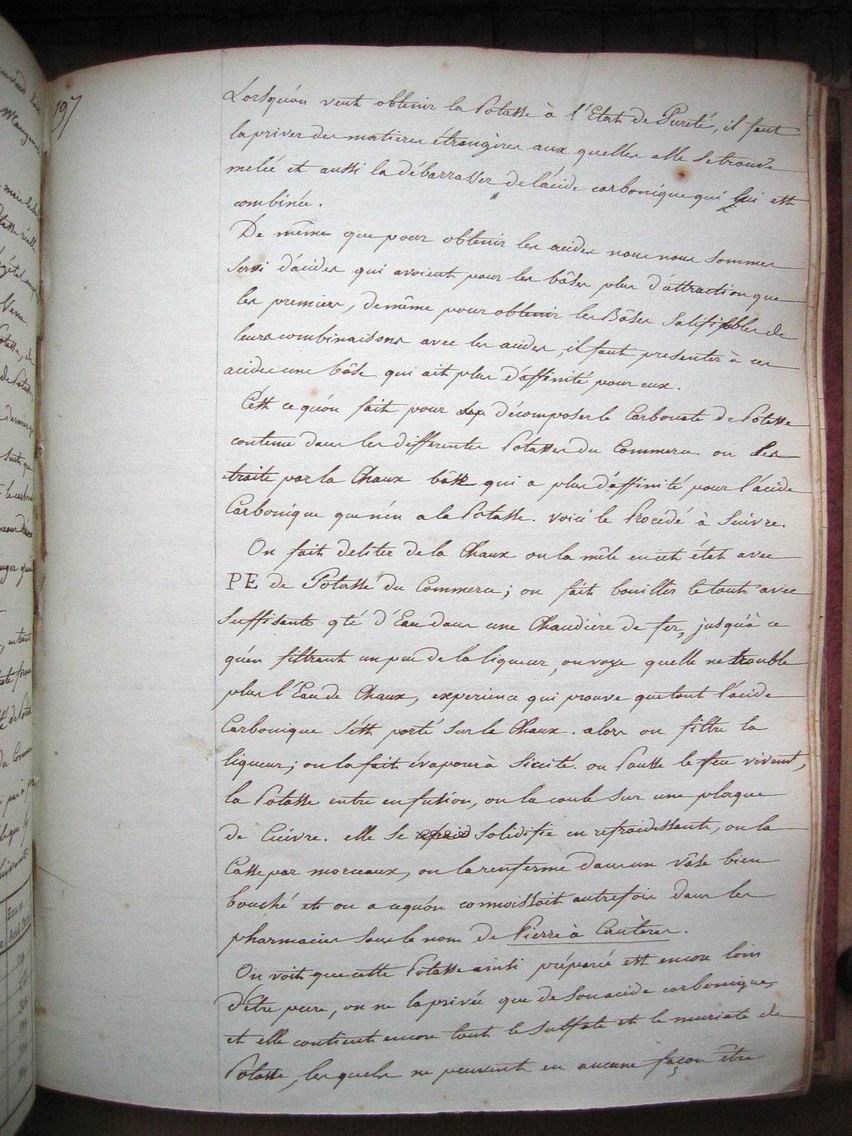 197
Lorsqu'on veut obtenir la Potasse à l'Etat de Pureté, il faut
la priver des matieres étrangères aux quelles elle se trouve
melée et aussi la débarrasser de l'acide carbonique qui lui est
combinée.
De même que pour obtenir les acides nous nous sommes
servi d'acides qui avoient pour les bâses plus d'attraction que
les premiers, de même pour obtenir les Bâses Salifiables de
leurs combinaisons avec les acides, il faut presenter à ces
acides une bâse qui ait plus d'affinité pour eux.
C'est ce qu'on fait pour décomposer le Carbonate de Potasse
contenu dans les differentes Potasses du Commerce. on les
traite par la Chaux bâse qui a plus d'affinité pour l'acide
Carbonique que n'en a la Potasse. voici le Procédé à Suivre.
On fait deliter de la Chaux on la mêle en cet état avec
PE de Potasse du Commerce; on fait bouillir le tout avec
Suffisante qté d'Eau dans une Chaudière de fer, jusqu'à ce
qu'en filtrant un peu de la liqueur, on voye quelle ne trouble
plus l'Eau de Chaux, experience qui prouve que tout l'acide
Carbonique s'est porté sur la Chaux. alors on filtre la
liqueur; on la fait évaporer à Siccité. on Pousse le feu vivement,
la Potasse entre en fusion, on la coule sur une plaque
de Cuivre. elle se solidifie en refroidissant, on la
Casse par morceaux, on la renferme dans un vâse bien
bouché et on a ce qu'on connoissoit autrefois dans les
pharmacies sous le nom de Pierre à Cautères.
On voit que cette Potasse ainsi préparée est encore loin
d'être pure, on ne la privée que de son acide carbonique,
et elle contient encore tout le Sulfate et le muriate de
Potasse, les quels ne peuvent en aucune façon être